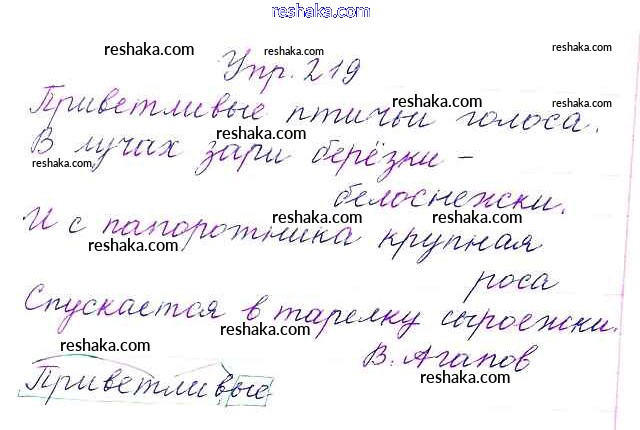 reshaka.com
reshaka.com reshaka.com reshaka.com
Упр. 219
reshaka.com
Приветливые птичьи голоса.
reshaka.com
В лучах зари берёзки –
reshaka.com reshaka.com
белоснежски.
reshaka.com reshaka.com
И с папоротника крупная
reshaka.com
роса
Спускается в тарелку сыроежки.
reshaka.com reshaka.com
В. Агапов
reshaka.com
Приветливые